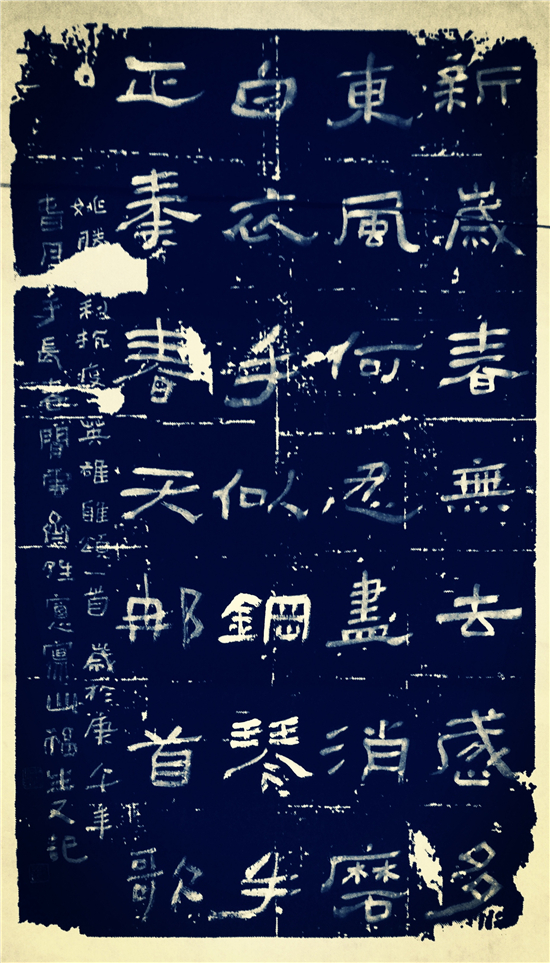 新歲春無去多
東風何忍盡消磨
白衣手似鋼琴手
正奏春天那首歌
姚勝 抗疫英雄 頌一首 歲於庚子年
月 長 山福生又記